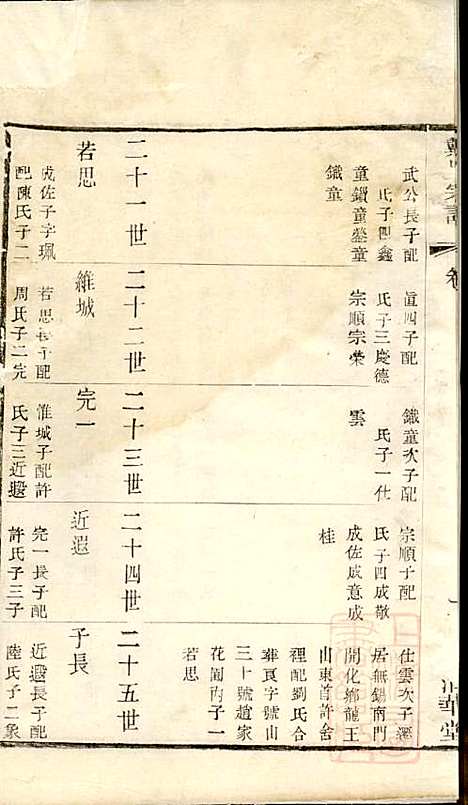 武公長子配
氏子四鑫
童鎖童鎣童
鐵童
眞四子配
氏子三慶德
宗順宗榮
鐵童次子配
氏子一仕
雲
宗順子配
氏子四成敬
成佐成意成
桂
仕雲次子遷
居無錫南門
開化鄉龍王
山東首許舍
裡配劉氏合
葬良字號山
三十號趙家
花園內子一
若思
二十一世
二十二世
二十三世
二十四世
二十五世
若思
成佐子字珮
配陳氏子二
維城
若思長子配
周氏子二完
完一
維城子配許
氏子三近遐
近遐
完一長子配
許氏子三子
子長
近遐長子配
陸氏子二象